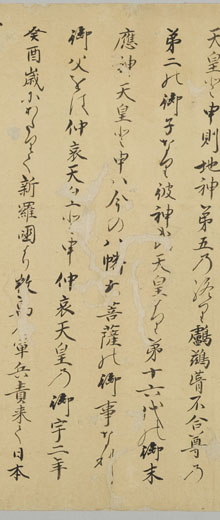 天皇と申則地神第五乃鸕鷀葺不合尊乃
第二の御子なり彼神武天皇より第十六代の御末
應神天皇と申ハ今の八幡大菩薩の御事なり
御父をハ仲哀天皇と申仲哀天皇乃御宇二年
癸酉歳にあたりて新羅國より数万軍兵責来て日本